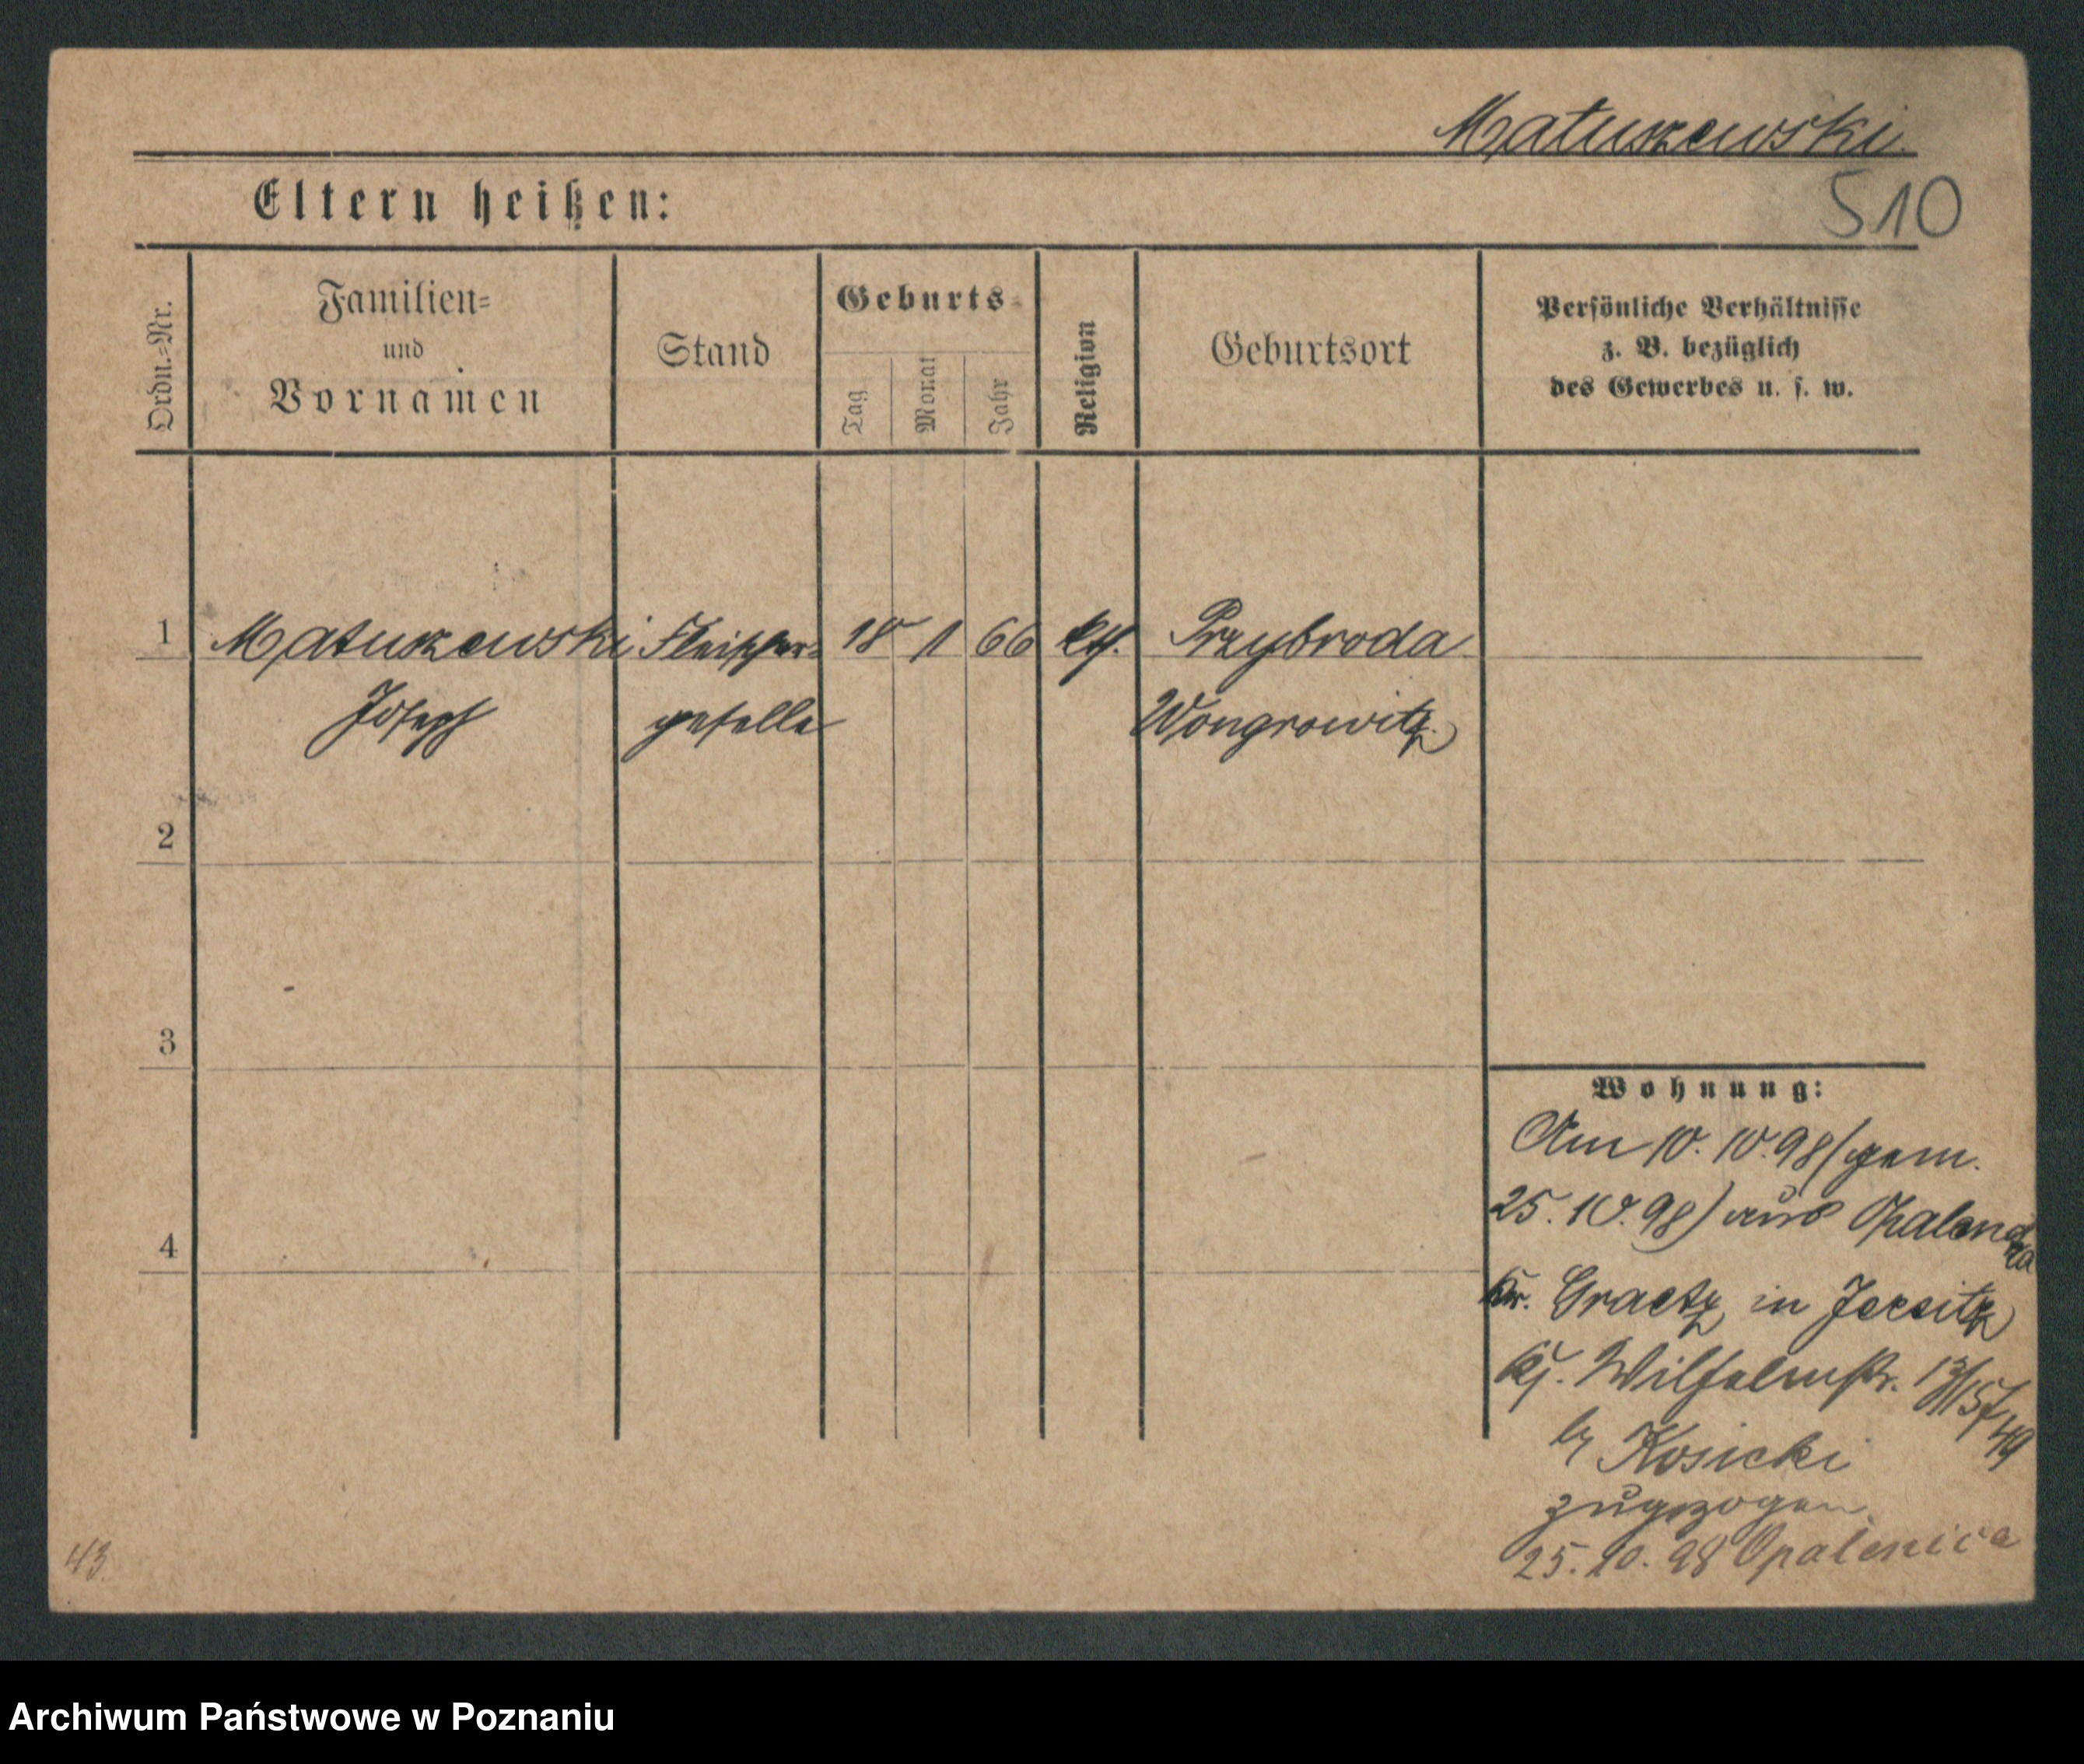 Matuszewski.
510
Eltern heißen:
Ordn.-Nr.
Familien-
und
Vornamen
Stand
Geburts-
Tag
Monat
Jahr
Religion
Geburtsort
Persönliche Verhältnisse
z. B. bezüglich
des Gewerbes u. s. w.
1 Matuszewski Fleischer- 18 1 66 kth. Przybroda
Joseph geselle Wongrowitz
2
3
4
Wohnung:
Am 10. 10. 98 (gem.
25. 10. 98) aus Opalenitza
Kr. Graetz in Jersitz
Wilhelmstr.
Kosicki
zugezogen
25. 10. 98 Opalenica
43.
Archiwum Państwowe w Poznaniu